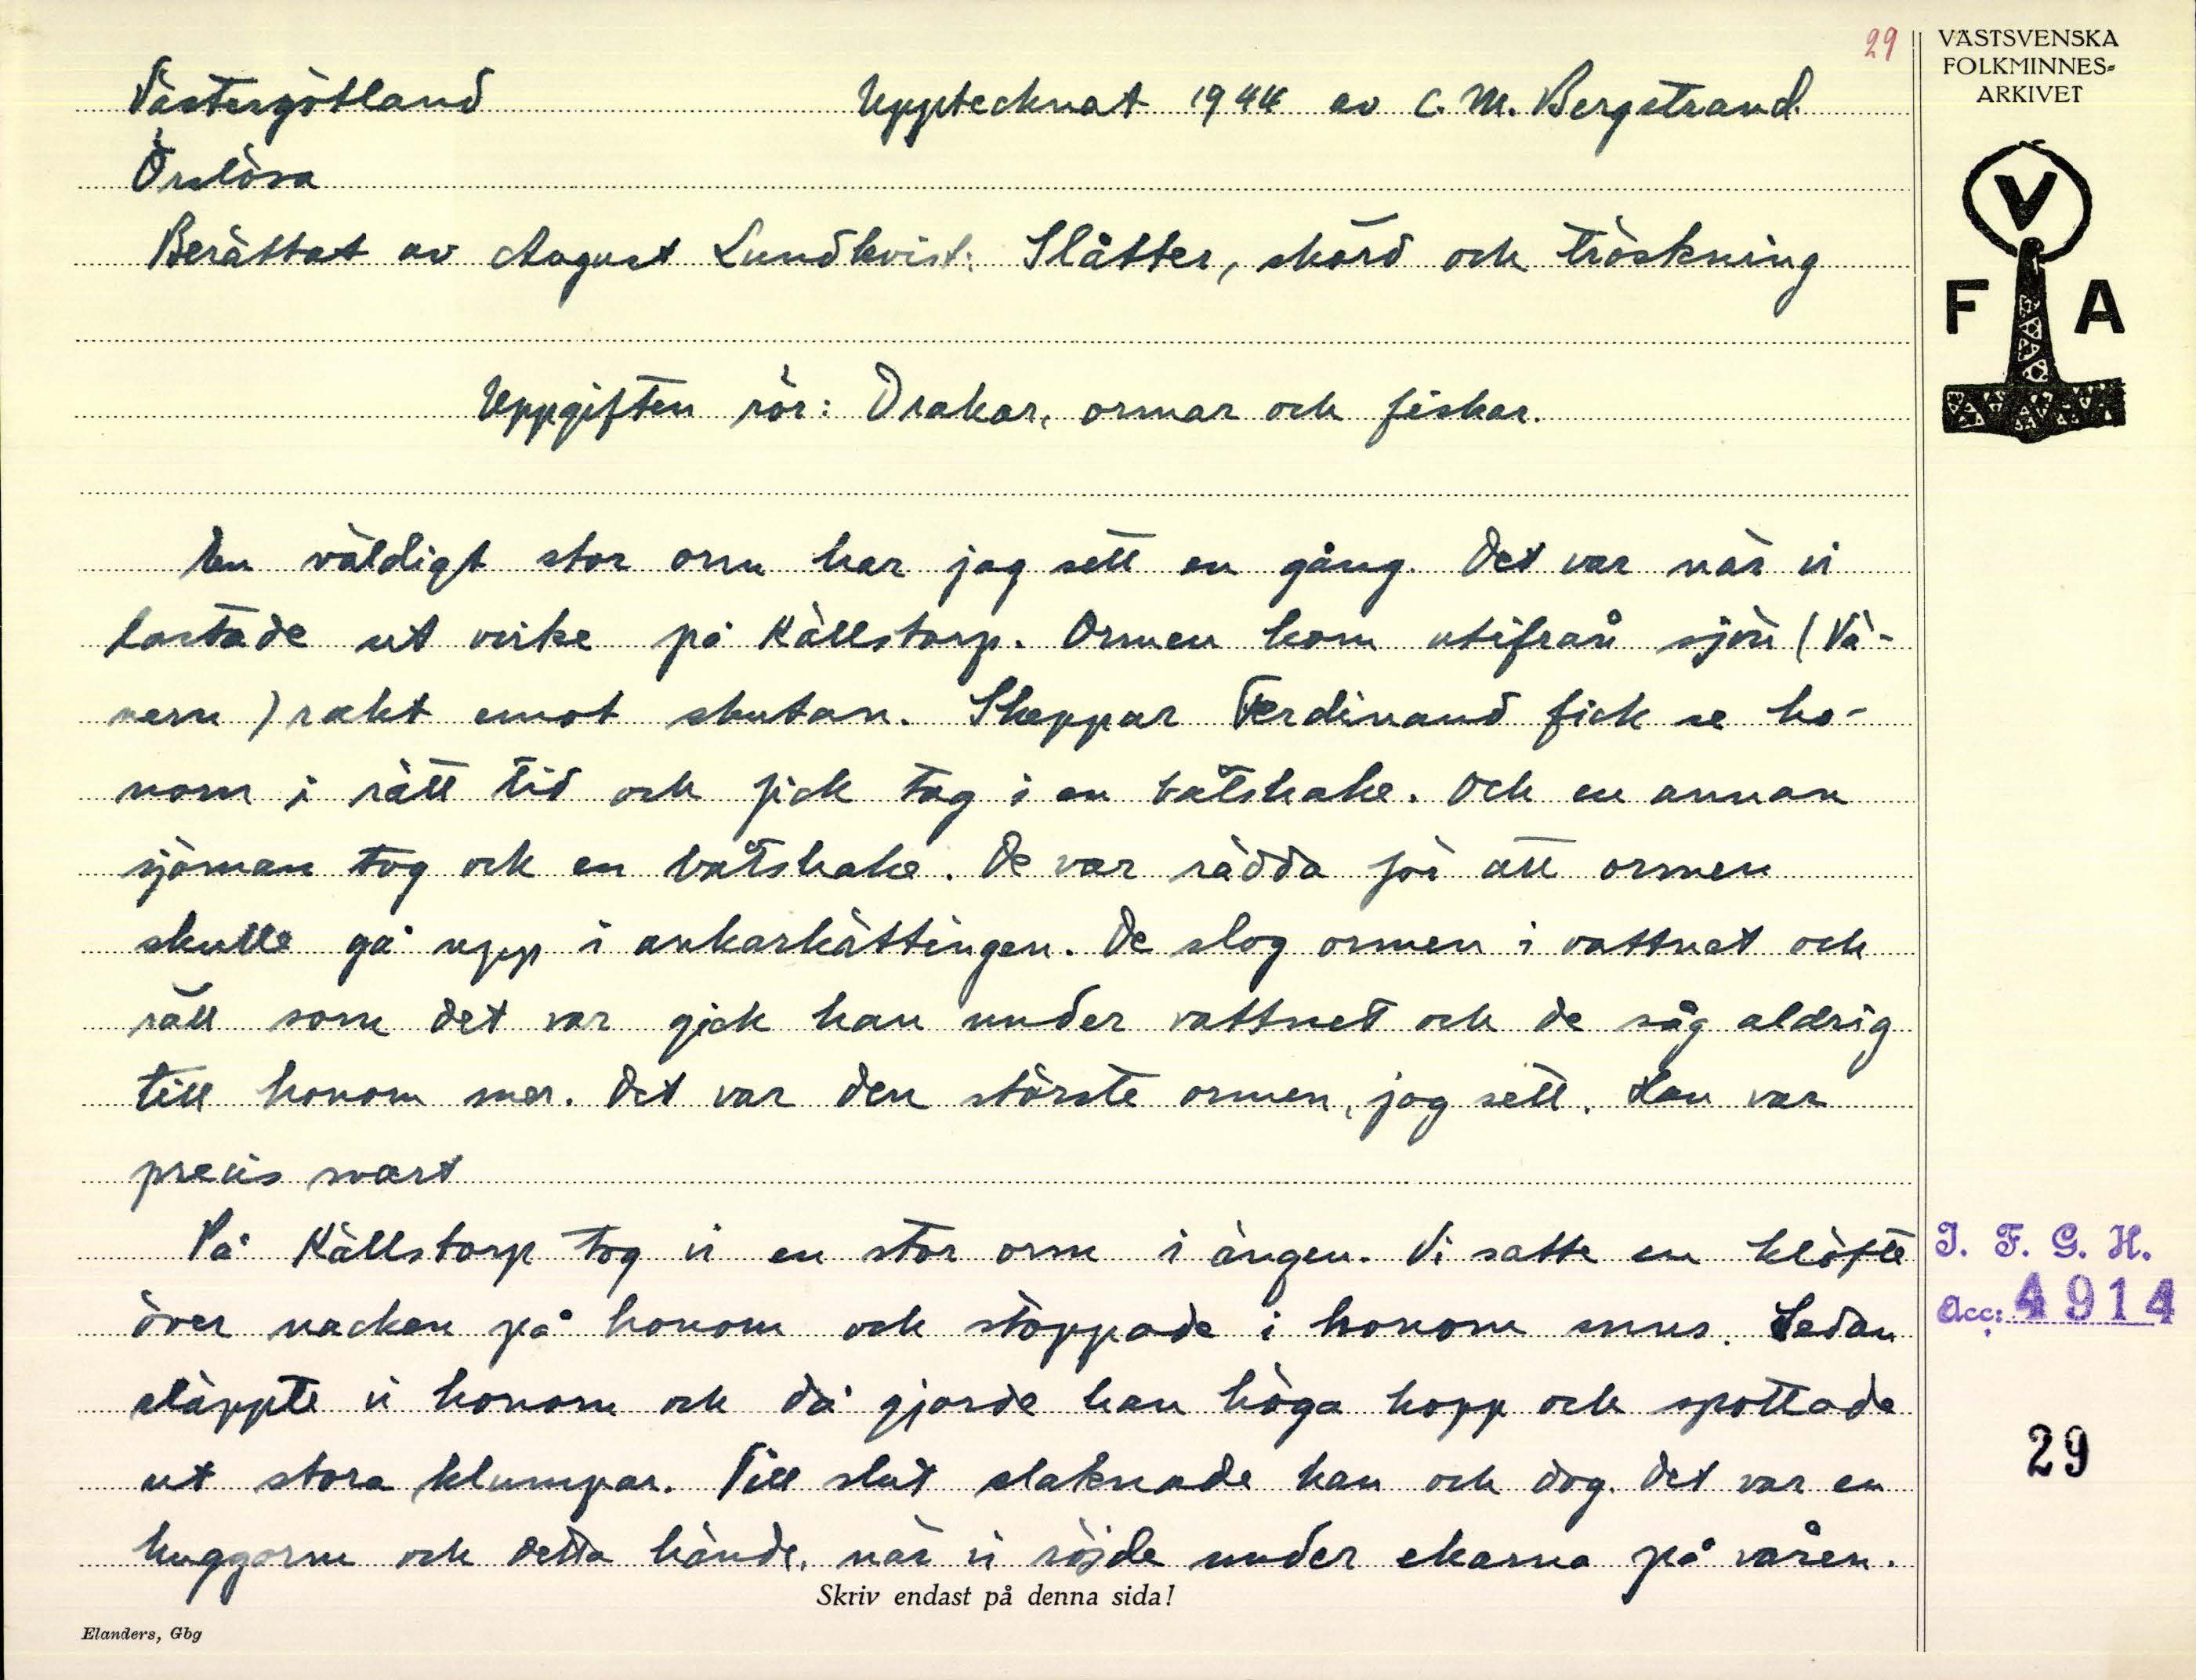 29
VÄSTSVENSKA
FOLKMINNES-
ARKIVET
V
F A
Västergötland Upptecknat 1944 av C. M. Bergstrand.
Örslösa
Berättat av August Lundkvist: Slåtter, skörd och tröskning
Uppgiften rör: Drakar, ormar och fiskar.
En väldigt stor orm har jag sett en gång. Det var när vi
lastade ut virke på Källstorp. Ormen kom utifrån sjön (Vä-
nern) rakt emot skutan. Skeppar Ferdinand fick se ho-
nom i rätt tid och fick tag i en båtshake. Och en annan
sjöman tog ock en båtshake. De var rädda för att ormen
skulle gå upp i ankarkättingen. De slog ormen i vattnet och
rätt som det var gick han under vattnet och de såg aldrig
till honom mer. Det var den största ormen, jag sett. Han var
precis svart
På Källstorp tog vi en stor orm i ängen. Vi satte en klöfte
över nacken på honom och stoppade i honom snus. Sedan
släppte vi honom och då gjorde han höga hopp och spottade
ut stora klumpar. Till slut slaknade han och dog. Det var en
huggorm och detta hände, när vi röjde under ekarna på våren.
Skriv endast på denna sida!
Elanders, Gbg
I. F. G. H.
Acc: 4914
29